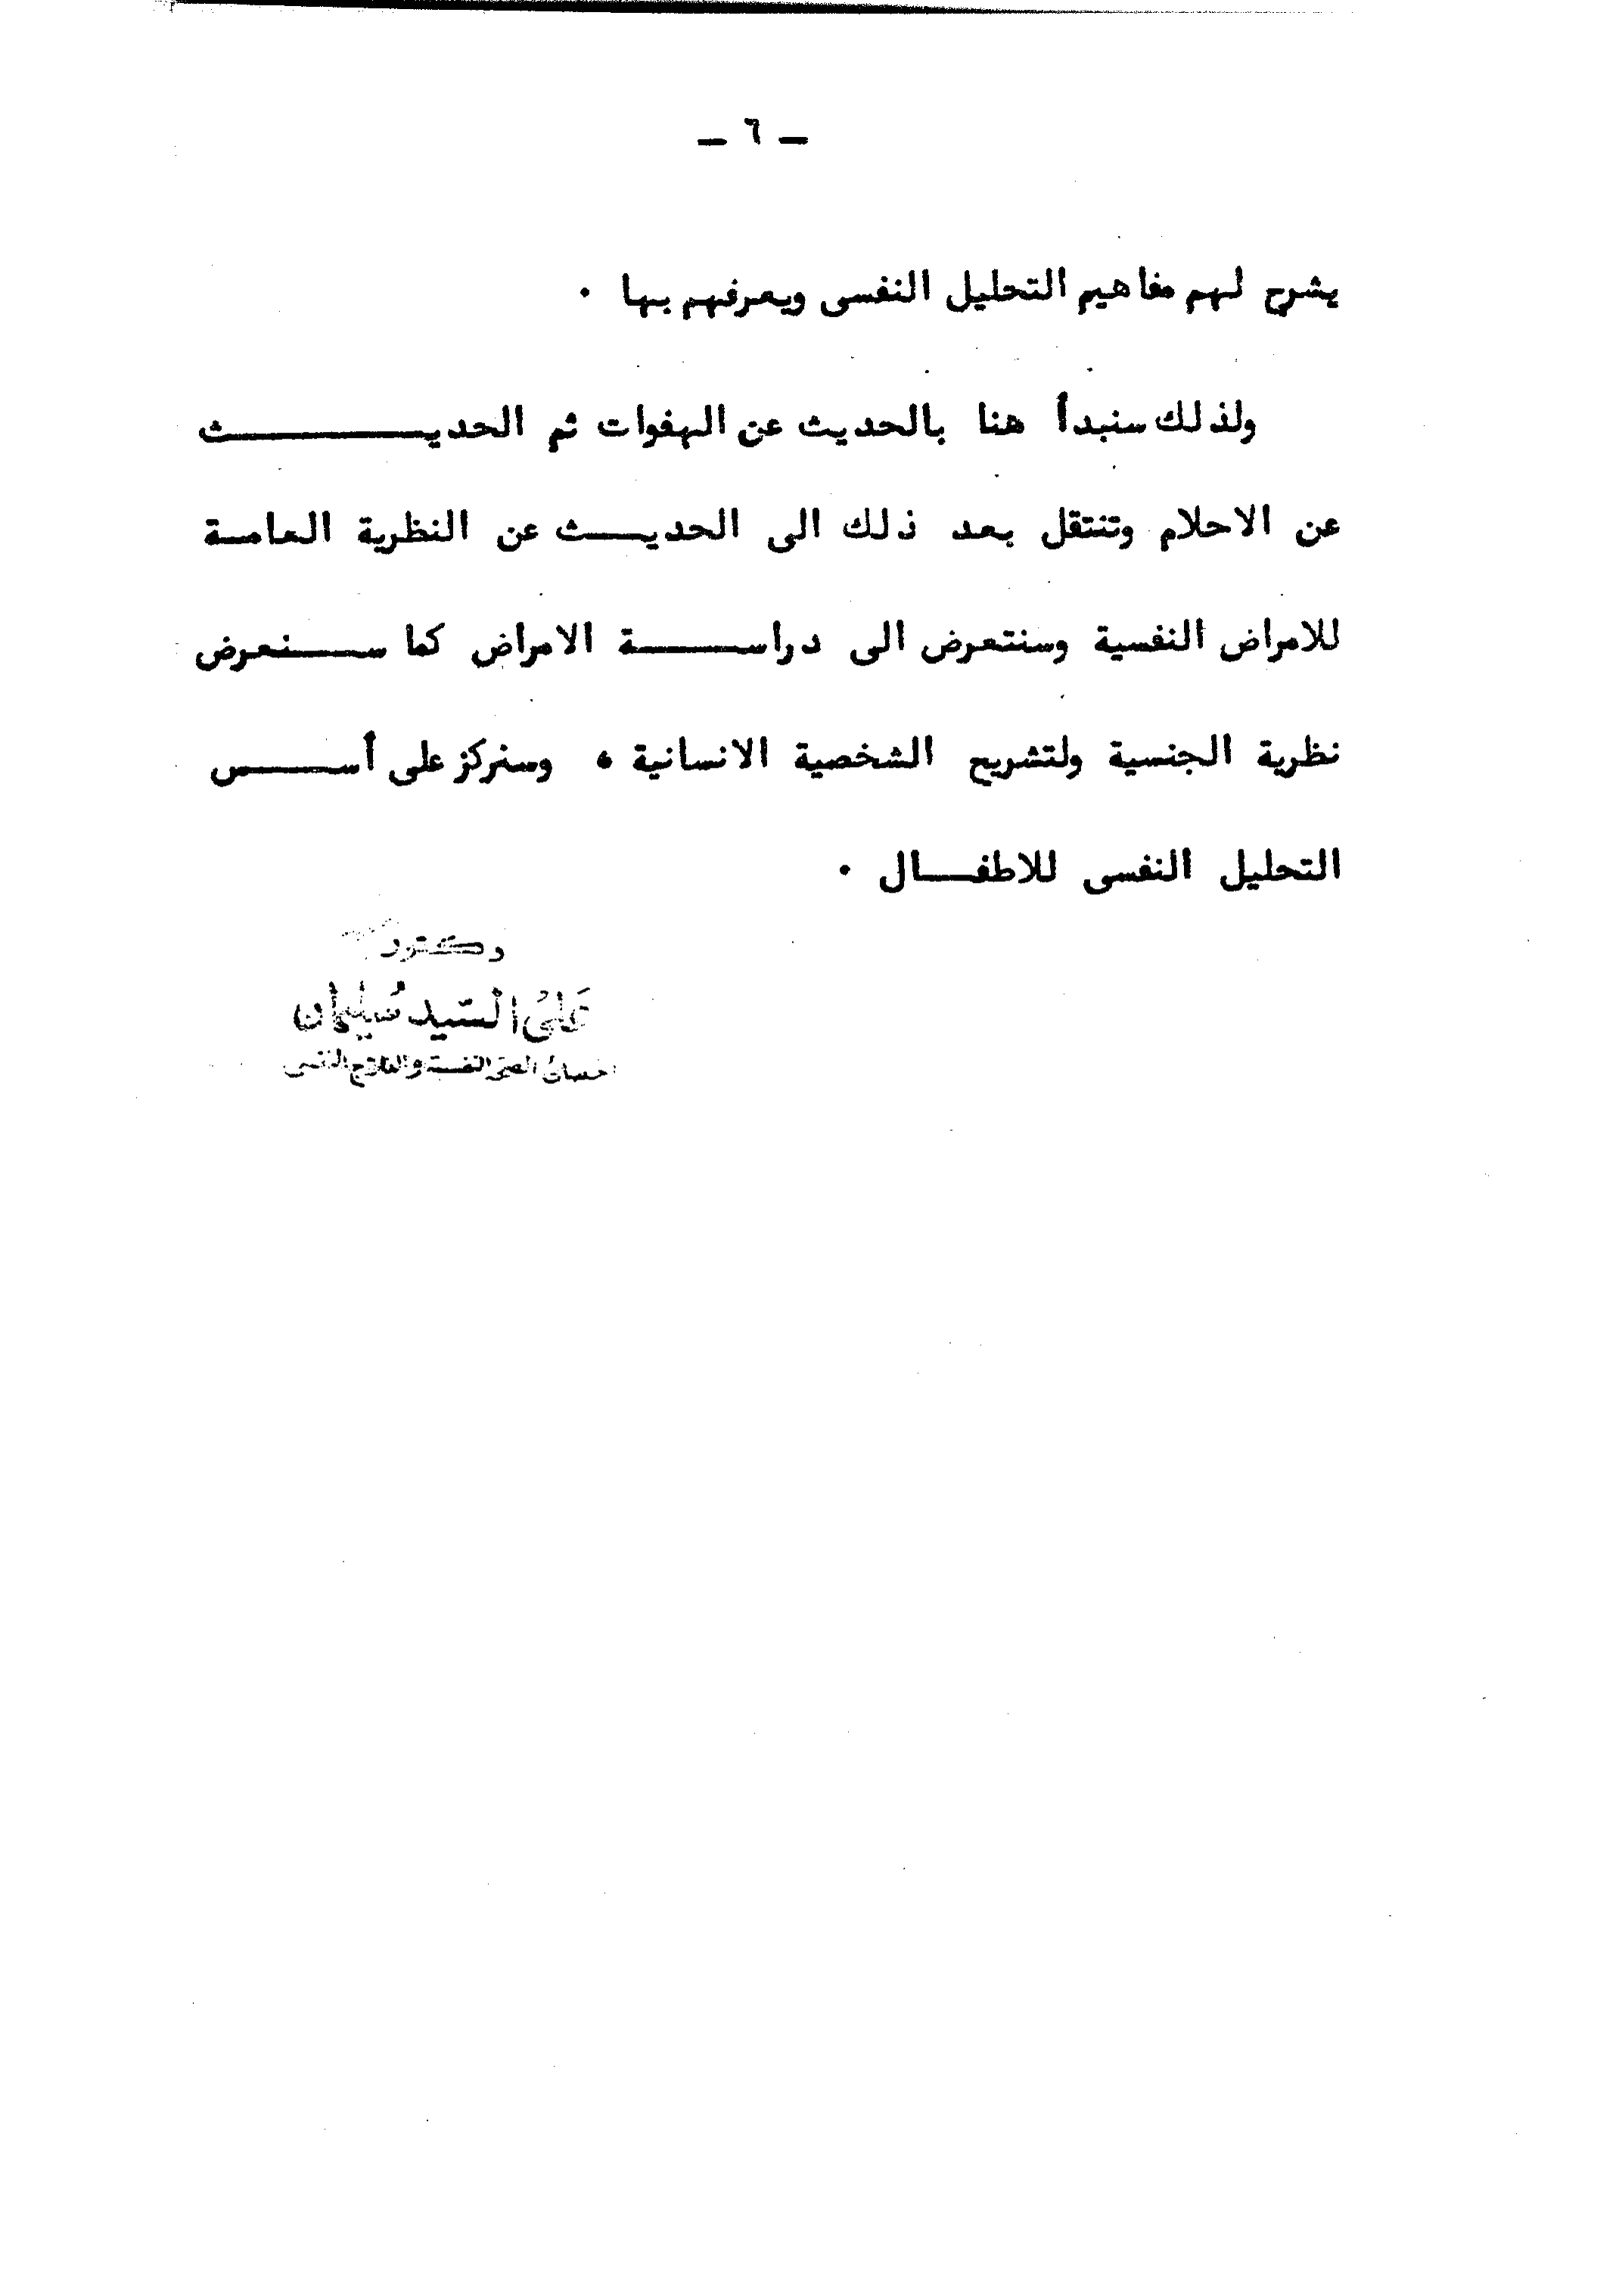 — ٦ —
يشرح لهم مفاهيم التحليل النفسى ويعرفهم بها ٠
ولذلك سنبدأ هنا بالحديث عن الهفوات ثم الحديـــــــــث
عن الاحلام وتنتقل بعد ذلك الى الحديــث عن النظرية العامــة
للامراض النفسية وسنتعرض الى دراســـــة الامراض كما ســـنعرض
نظرية الجنسية ولتشريح الشخصية الانسانية ، وسنركز على أســـــس
التحليل النفسى للاطفــــال ٠
دكتور
على السيد سليمان
اخصائى الصحة النفسية والعلاج النفسى